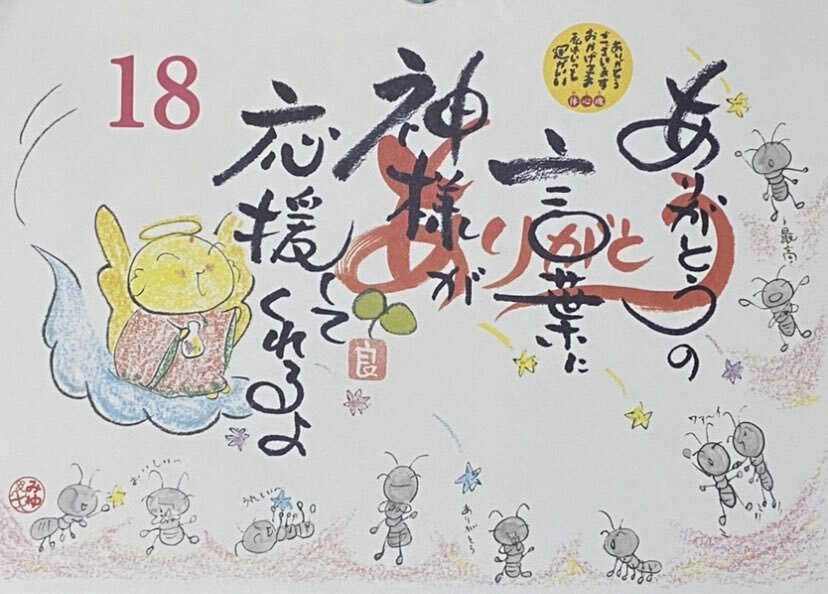 18
ありがとうの
言葉に
神様が
応援して
くれるよ
ありがとう
ありがとう
ございます
おかげさま
私はいつも
運がいい
体心魂
良
最高
ワァーイ
ありがとう
うれしい
おいしい〜
みゆ